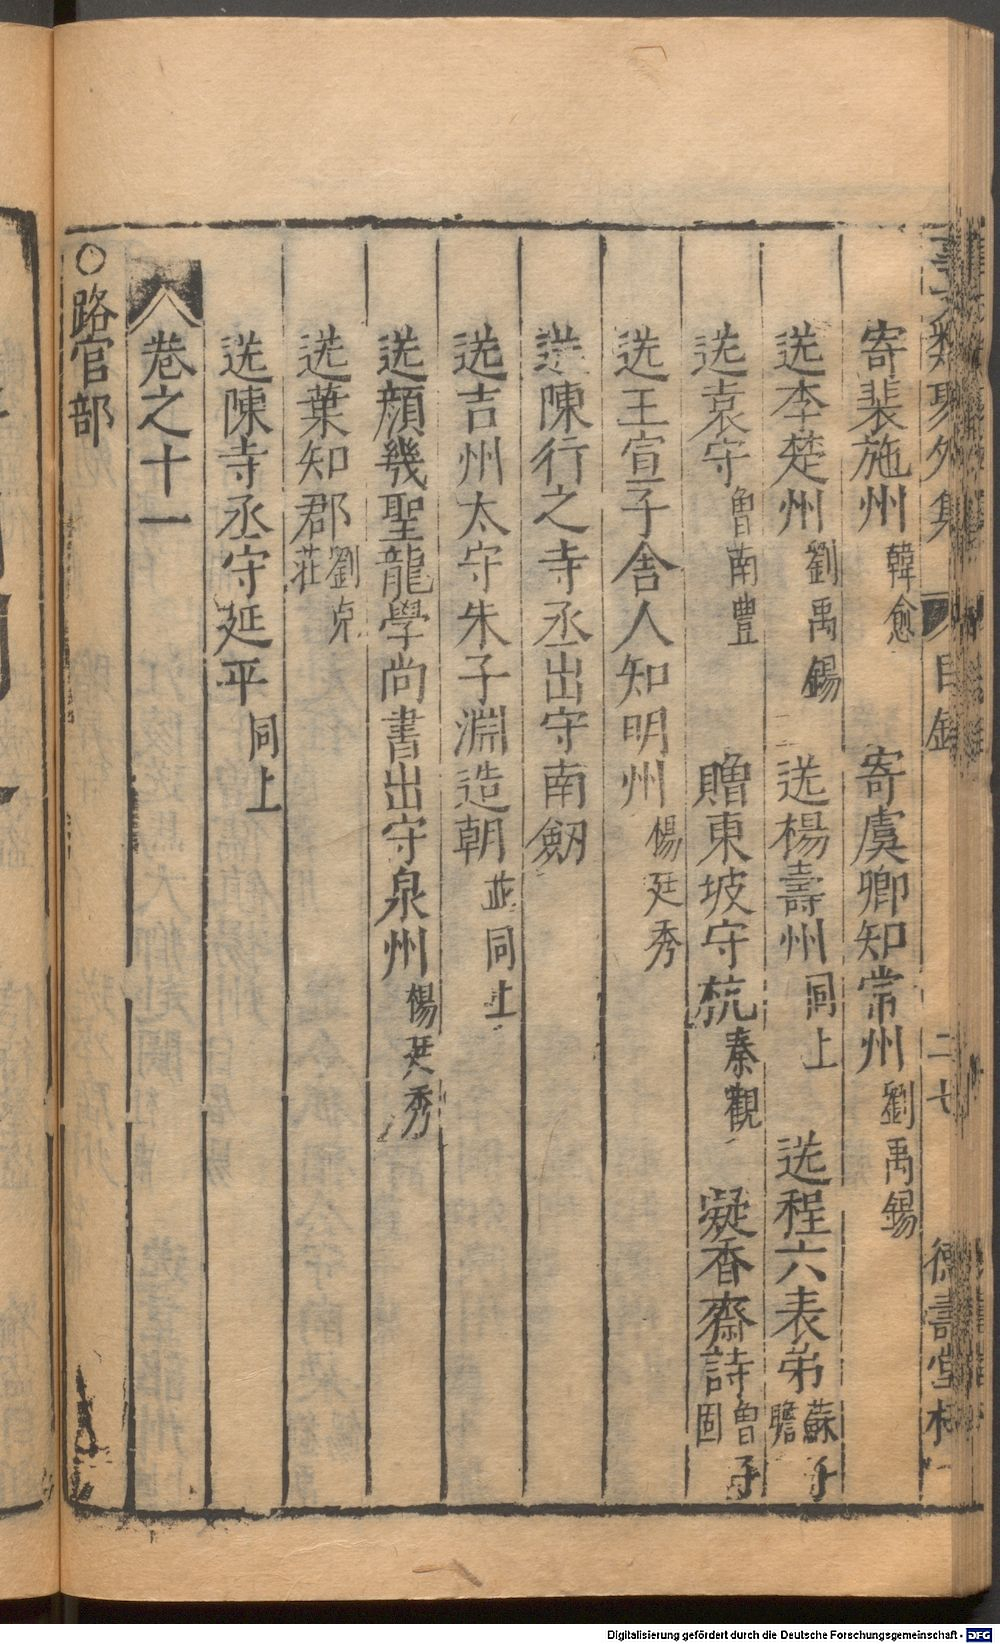 事文類聚外集 目錄 二七 德壽堂梓
寄裴施州 韓愈 寄虞卿知常州 劉禹錫
送李楚州 劉禹錫 送楊壽州 同上 送程六表弟 蘇子瞻
送袁守 曾南豐 贈東坡守杭 秦觀 凝香齋詩 曾子固
送王宣子舍人知明州 楊廷秀
送陳行之寺丞出守南劒
送吉州太守朱子淵造朝 並同上
送顏幾聖龍學尚書出守泉州 楊廷秀
送葉知郡 劉克莊
送陳寺丞守延平 同上
卷之十一
○路官部
Digitalisierung gefördert durch die Deutsche Forschungsgemeinschaft - DFG